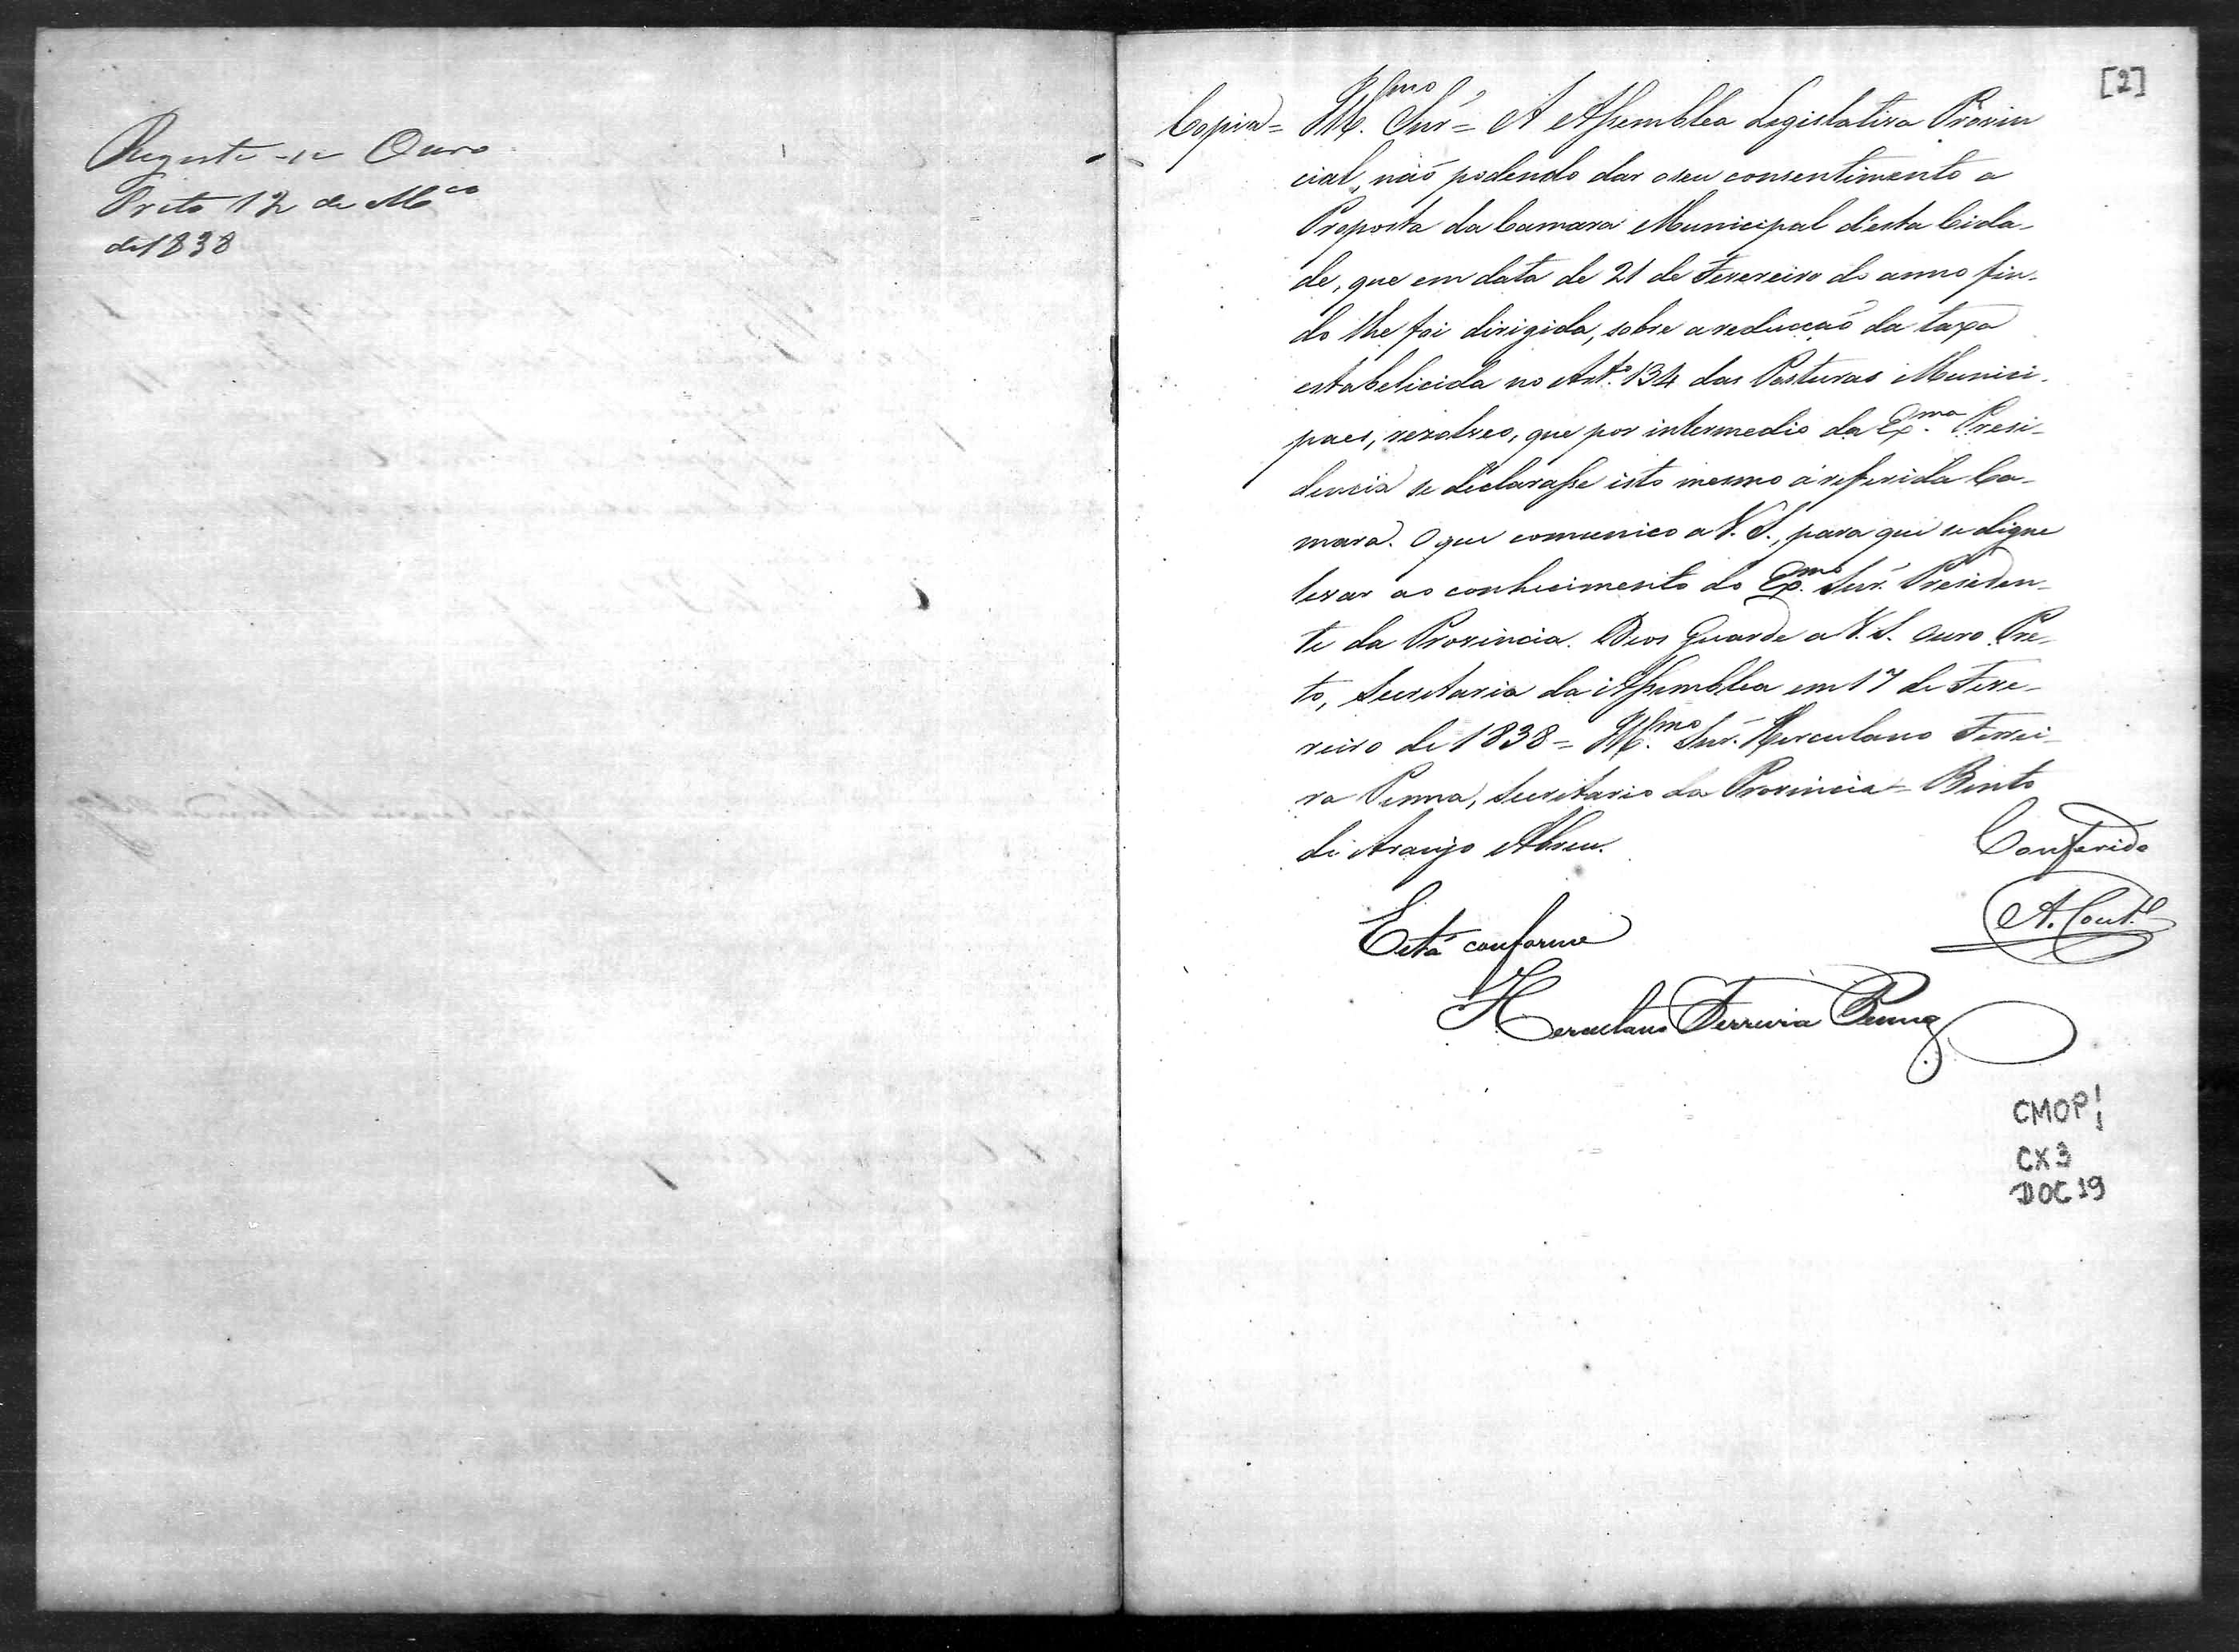 Registe-se Ouro
Preto 12 de Mço
de 1838
[2]
Copia = Illmo. Snr = A Assemblea Legislativa Provin
cial, não podendo dar o seu consentimento a
Proposta da Camara Municipal d'esta Cida-
de, que em data de 21 de Fevereiro do anno fin-
do lhe foi dirigida, sobre a reducção da taxa
estabelicida no Arto. 134 das Posturas Munici-
paes, resolveo, que por intermedio da Exma. Presi-
dencia se declarasse isto mesmo á referida Ca-
mara. O que comunico a V. S., para que se digne
levar ao conhecimento do Exmo. Snr. Presiden-
te da Provincia. Deos Guarde a V. S. Ouro Pre-
to, Secretaria da Assemblea em 17 de Feve-
reiro de 1838 = Illmo. Snr. Herculano Ferrei-
ra Penna, Secretario da Provincia = Bento
de Araujo Abreu.
Conferido
A. Cout.
Está conforme
Herculano Ferreira Penna
CMOP
CX3
DOC 19